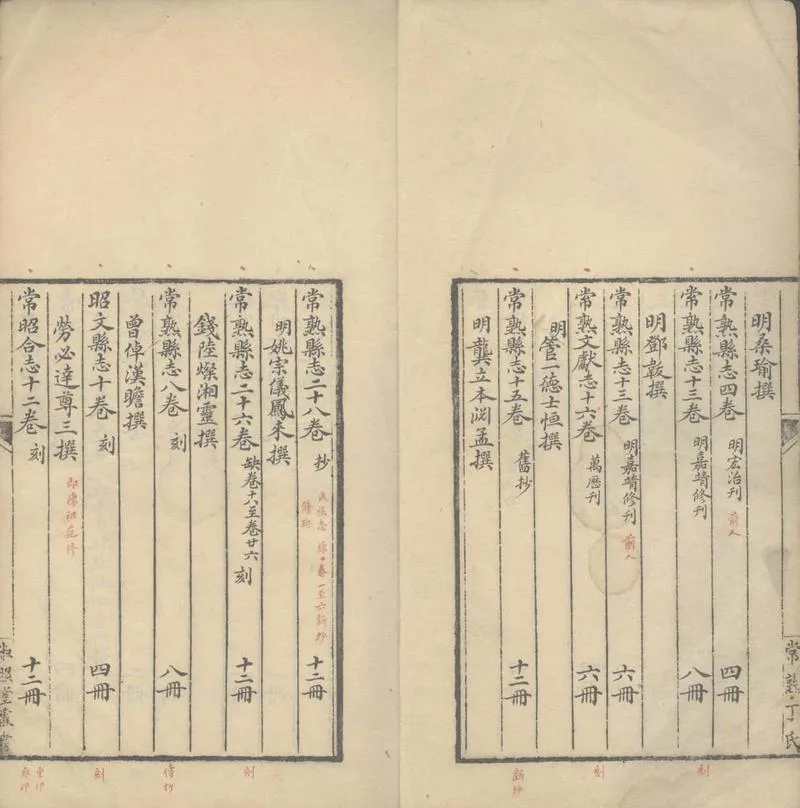 明桑瑜撰
常熟縣志四卷 明宏治刊 四冊
常熟縣志十三卷 明嘉靖修刊 八冊
明鄧韍撰
常熟縣志十三卷 明嘉靖修刊 六冊
常熟文獻志十六卷 萬歷刊 六冊
明管一德士恒撰
常熟縣志十五卷 舊抄 十二冊
明龔立本淵孟撰
常熟丁氏
刻
刻
新抄
常熟縣志二十八卷 抄 十二冊
明姚宗儀鳳來撰
常熟縣志二十六卷 缺卷十八至卷廿六 刻 十二冊
錢陸燦湘靈撰
常熟縣志八卷 刻 八冊
曾倬漢瞻撰
昭文縣志十卷 刻 四冊
勞必達尊三撰
常昭合志十二卷 刻 十二冊
淑照堂叢書
刻
刻